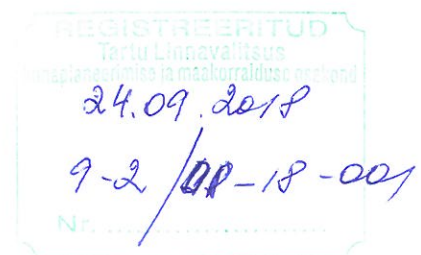 REGISTREERITUD
Tartu Linnavalitsus
linnaplaneerimise ja maakorralduse osakond
24.09.2018
9-2/DP-18-001
Nr.